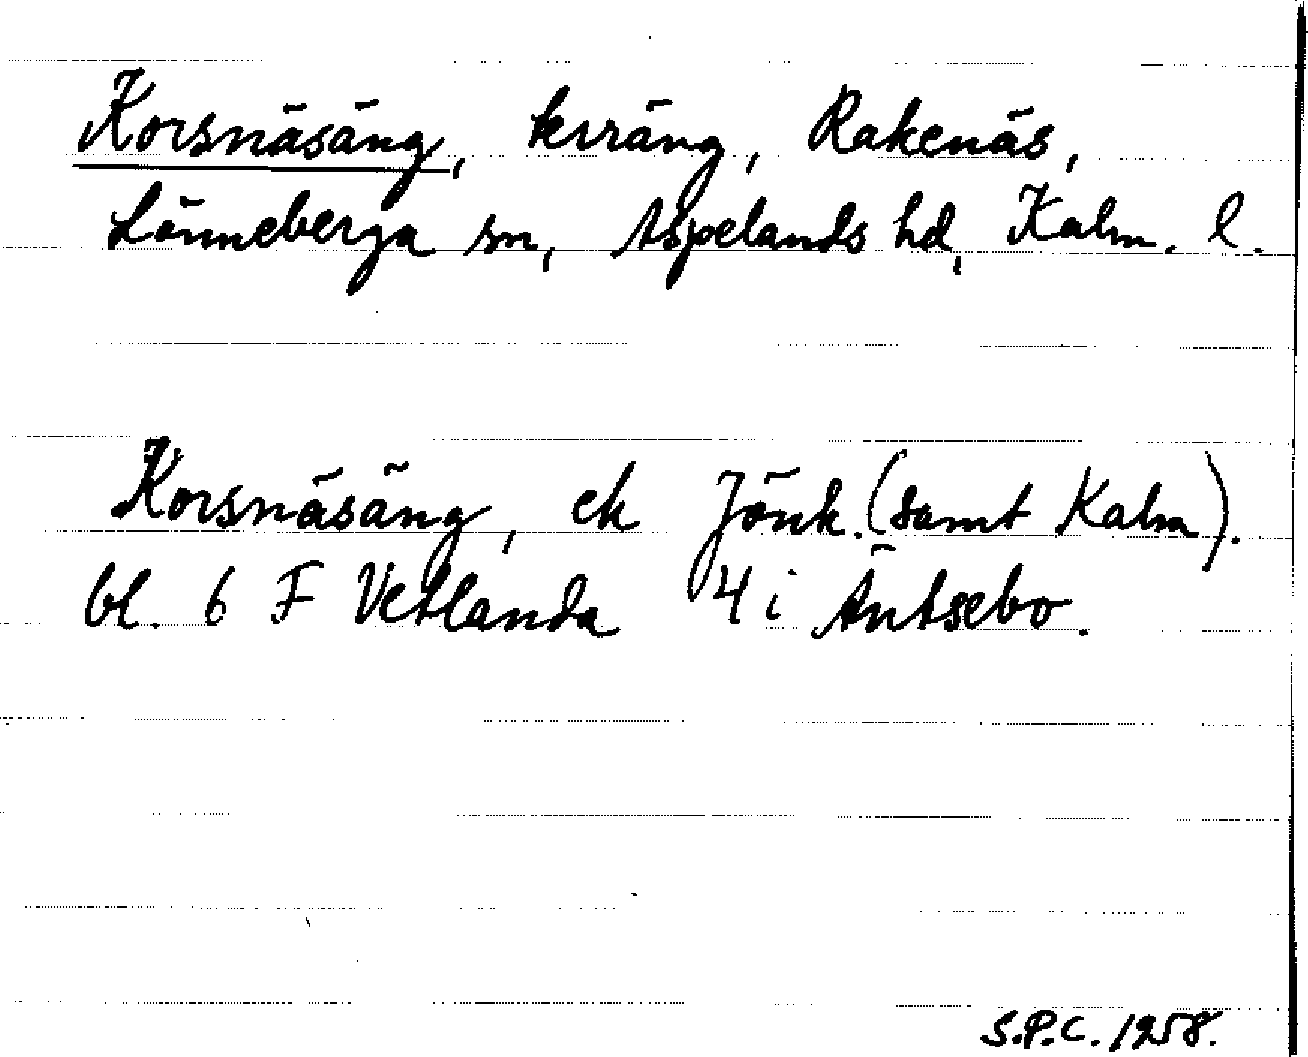 Korsnäsäng, terräng, Rakenäs,
Lönneberga sn, Aspelands hd, Kalm. l.
Korsnäsäng, ek Jönk. (samt Kalm).
bl. 6 F Vetlanda 4 i Äntsebo.
S.P.C. 1958.